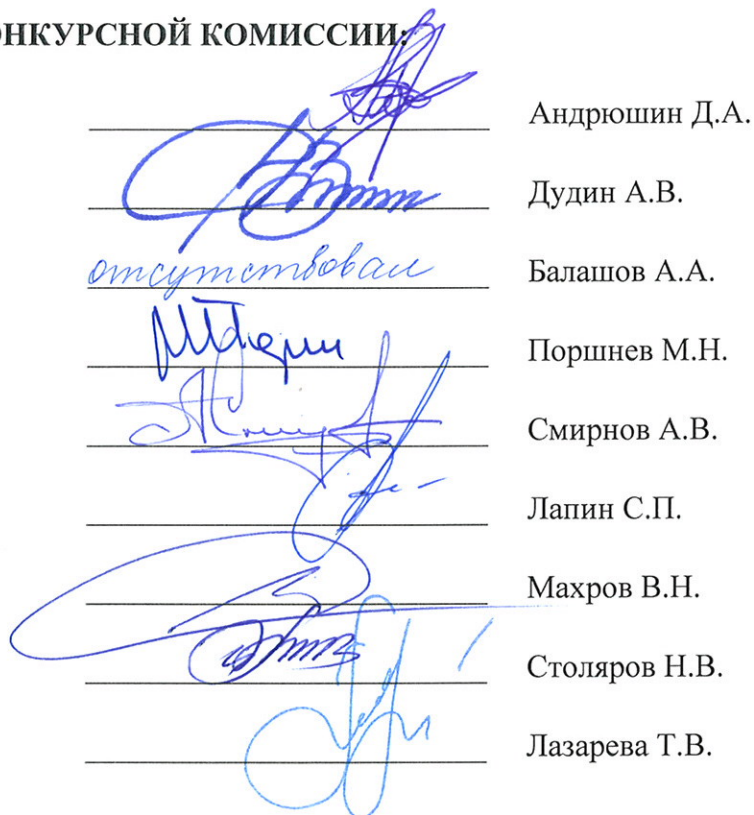 ОНКУРСНОЙ КОМИССИИ:
Андрюшин Д.А.
Дудин А.В.
отсутствовал Балашов А.А.
Поршнев М.Н.
Смирнов А.В.
Лапин С.П.
Махров В.Н.
Столяров Н.В.
Лазарева Т.В.